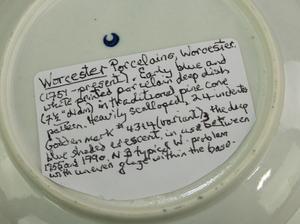 Worcester Porcelains, Worcester.
(1751 - present). Early blue and
white printed porcelain deep dish
(7½" diam) in traditional pine cone
pattern. Heavily scalloped, 24 indents
Godden mark # 4314 (variant), the deep
blue shaded crescent in use between
1755 and 1990. N B typical W. problem
with uneven glaze within the base.